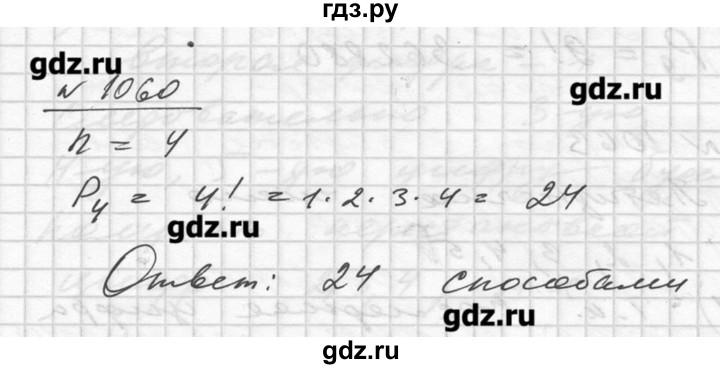 гдз.ру
gdz.ru
№ 1060
gdz.ru
n = 4
P₄ = 4! = 1·2·3·4 = 24
gdz.ru
Ответ: 24 способами
gdz.ru
gdz.ru